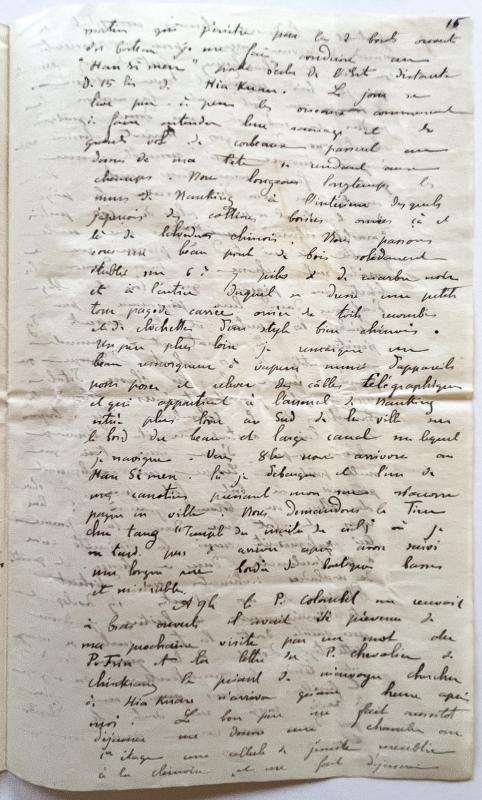 16
matin qui pénètre par les 2 bords ouverts
du bateau je me fais conduire au
"Han Si men" porte de l'Est distante
de 15 lis de Hia Kuan. Le jour se
lève peu à peu les oiseaux commencent
à faire entendre leur ramage et de
grands vols de corbeaux passent au
dessus de ma tête se rendant aux
champs. Nous longeons longtemps les
murs de Nanking à l'intérieur desquels
j'aperçois des collines boisées ornées çà et
là de belvédères chinois. Nous passons
sous un beau pont de bois solidement
établi sur 6 à 7 piles de marbre noir
et à l'entrée duquel se dresse une petite
tour pagode carrée ornée de toits recourbés
et de clochettes d'un style bien chinois.
Un peu plus loin je remarque un
beau remorqueur à vapeur muni d'appareils
pour poser et relever des câbles télégraphiques
et qui appartient à l'arsenal de Nanking
situé plus loin au Sud de la ville sur
le bord du beau et large canal sur lequel
je navigue. Vers 8h nous arrivons au
Han Si men. Là je débarque et l'un de
mes canotiers prenant mon sac m'accom
pagne en ville. Nous demandons le Tien
chu tang "Temple du maître du ciel" où je
ne tarde pas à arriver après avoir suivi
une longue rue bordée de boutiques basses
et misérables.
A 9h le P. Colombel me reçoit
à bras ouverts il avait été prévenu de
ma prochaine visite par un mot du
P. et la lettre du P. Chevalier de
Chinkiang le priant de m'envoyer chercher
à Hia Kuan n'arriva qu'une heure après
moi. Le bon père me fait aussitôt
déjeuner me donne une chambre au
1er étage une cellule de jésuite meublée
à la chinoise et me fait